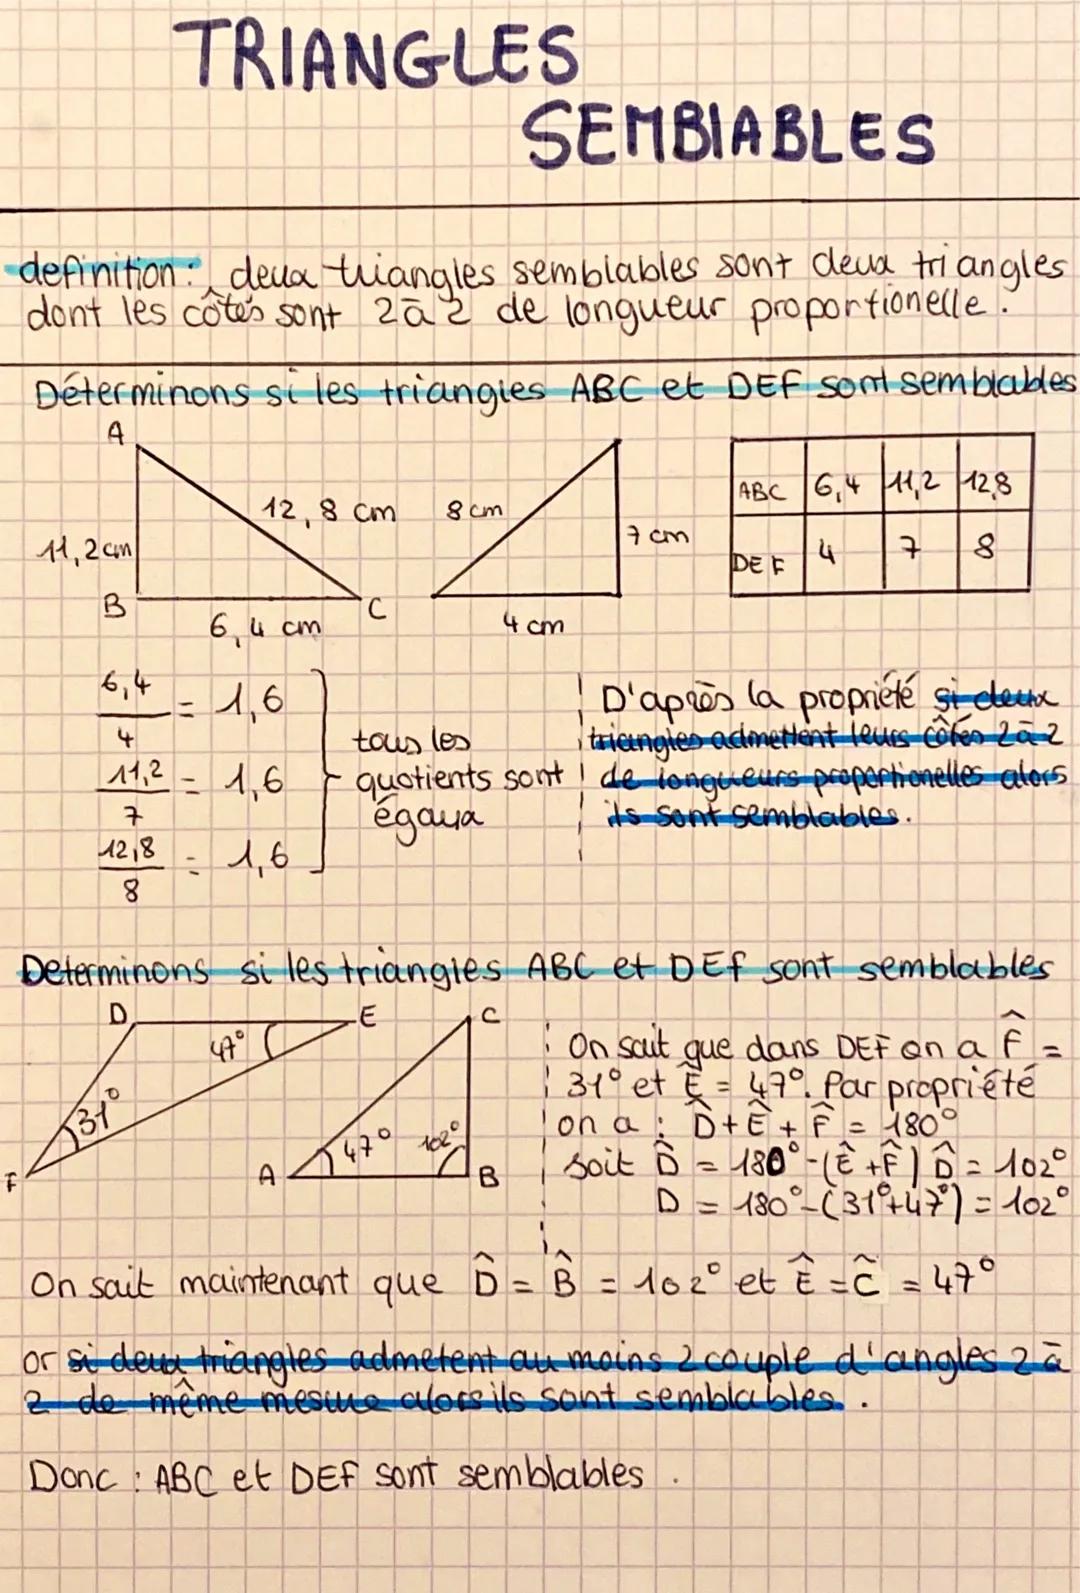 TRIANGLES
SEMBIABLES
definition: deux triangles semblables sont deux triangles
dont les côtés sont 2 à 2 de longueur proportionelle.
Déterminons si les triangles ABC et DEF sont semblables
A
12,8 cm
11,2 cm
B
6,4 cm
C
8 cm
7 cm
4 cm
ABC 6,4 11,2 12,8
DEF 4 7 8
6,4/4 = 1,6
11,2/7 = 1,6
12,8/8 = 1,6
tous les
quotients sont
égaux
D'après la propriété si deux
triangles admettent leurs côtés 2 à 2
de longueurs proportionelles alors
ils sont semblables.
Determinons si les triangles ABC et DEF sont semblables
D
E
47°
31°
F
C
47°
102°
A
B
On sait que dans DEF on a F̂ =
31° et Ê = 47°. Par propriété
on a : D̂ + Ê + F̂ = 180°
soit D̂ = 180° - (Ê + F̂) D̂ = 102°
D = 180° - (31° + 47°) = 102°
On sait maintenant que D̂ = B̂ = 102° et Ê = C̃ = 47°
or si deux triangles admetent au moins 2 couple d'angles 2 à
2 de même mesure alors ils sont semblables. .
Donc : ABC et DEF sont semblables .